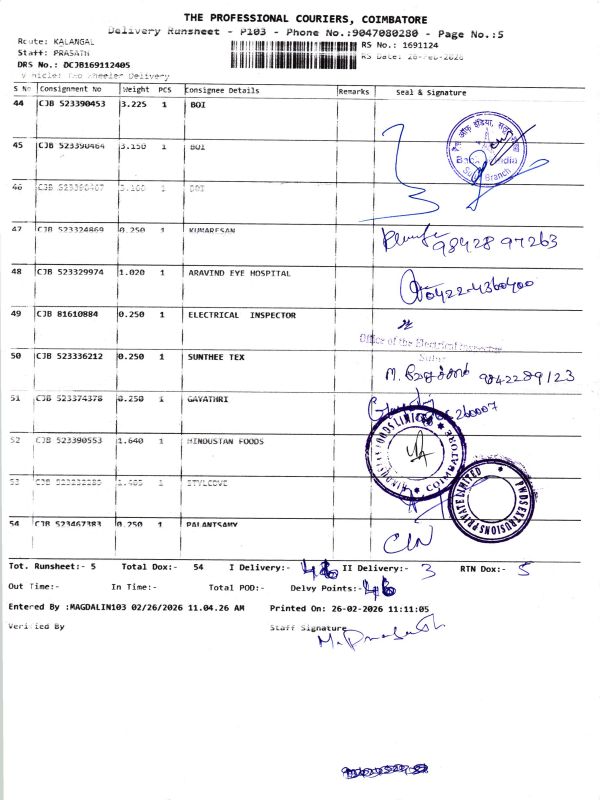 THE PROFESSIONAL COURIERS, COIMBATORE
Delivery Runsheet - P103 - Phone No.:9047080280 - Page No.:5
Route: KALANGAL
RS No.: 1691124
Staff: PRASATH
RS Date: 26-Feb-2026
DRS No.: DCJB169112405
Vehicle: Two Wheeler Delivery
S No Consignment No Weight PCS Consignee Details Remarks Seal & Signature
44 CJB 523390453 3.225 1 BOI
45 CJB 523390464 3.150 1 BOI
46 CJB 1 BOI
47 CJB 523324869 0.250 1 KUMARESAN
98428 97263
48 CJB 523329974 1.020 1 ARAVIND EYE HOSPITAL
0422-4360400
49 CJB 81610884 0.250 1 ELECTRICAL INSPECTOR
Office of the Electrical Inspector
Sulur
50 CJB 523336212 0.250 1 SUNTHEE TEX
9842289123
51 CJB 523374378 0.250 1 GAYATHRI
52 CJB 523390553 1.640 1 HINDUSTAN FOODS
HINDUSTAN FOODS LIMITED COIMBATORE
53 CJB 1
PRIVATE LIMITED
54 CJB 523467383 0.250 1 PALANISAMY
Tot. Runsheet:- 5 Total Dox:- 54 I Delivery:- 46 II Delivery:- 3 RTN Dox:- 5
Out Time:- In Time:- Total POD:- Delvy Points:- 46
Entered By :MAGDALIN103 02/26/2026 11.04.26 AM Printed On: 26-02-2026 11:11:05
Verified By Staff Signature
M. Prasath